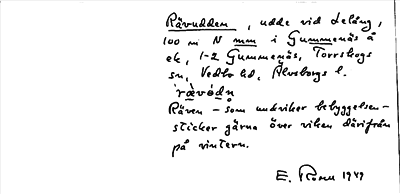 Rävudden, udde vid Lelång,
100 m N mm i Gummenäs å
ek, 1-2 Gummenäs, Torrskogs
sn, Vedbo hd, Älvsborgs l.
Räven - som undviker bebyggelsen -
sticker gärna över viken därifrån
på vintern.
E. Rosén 1949